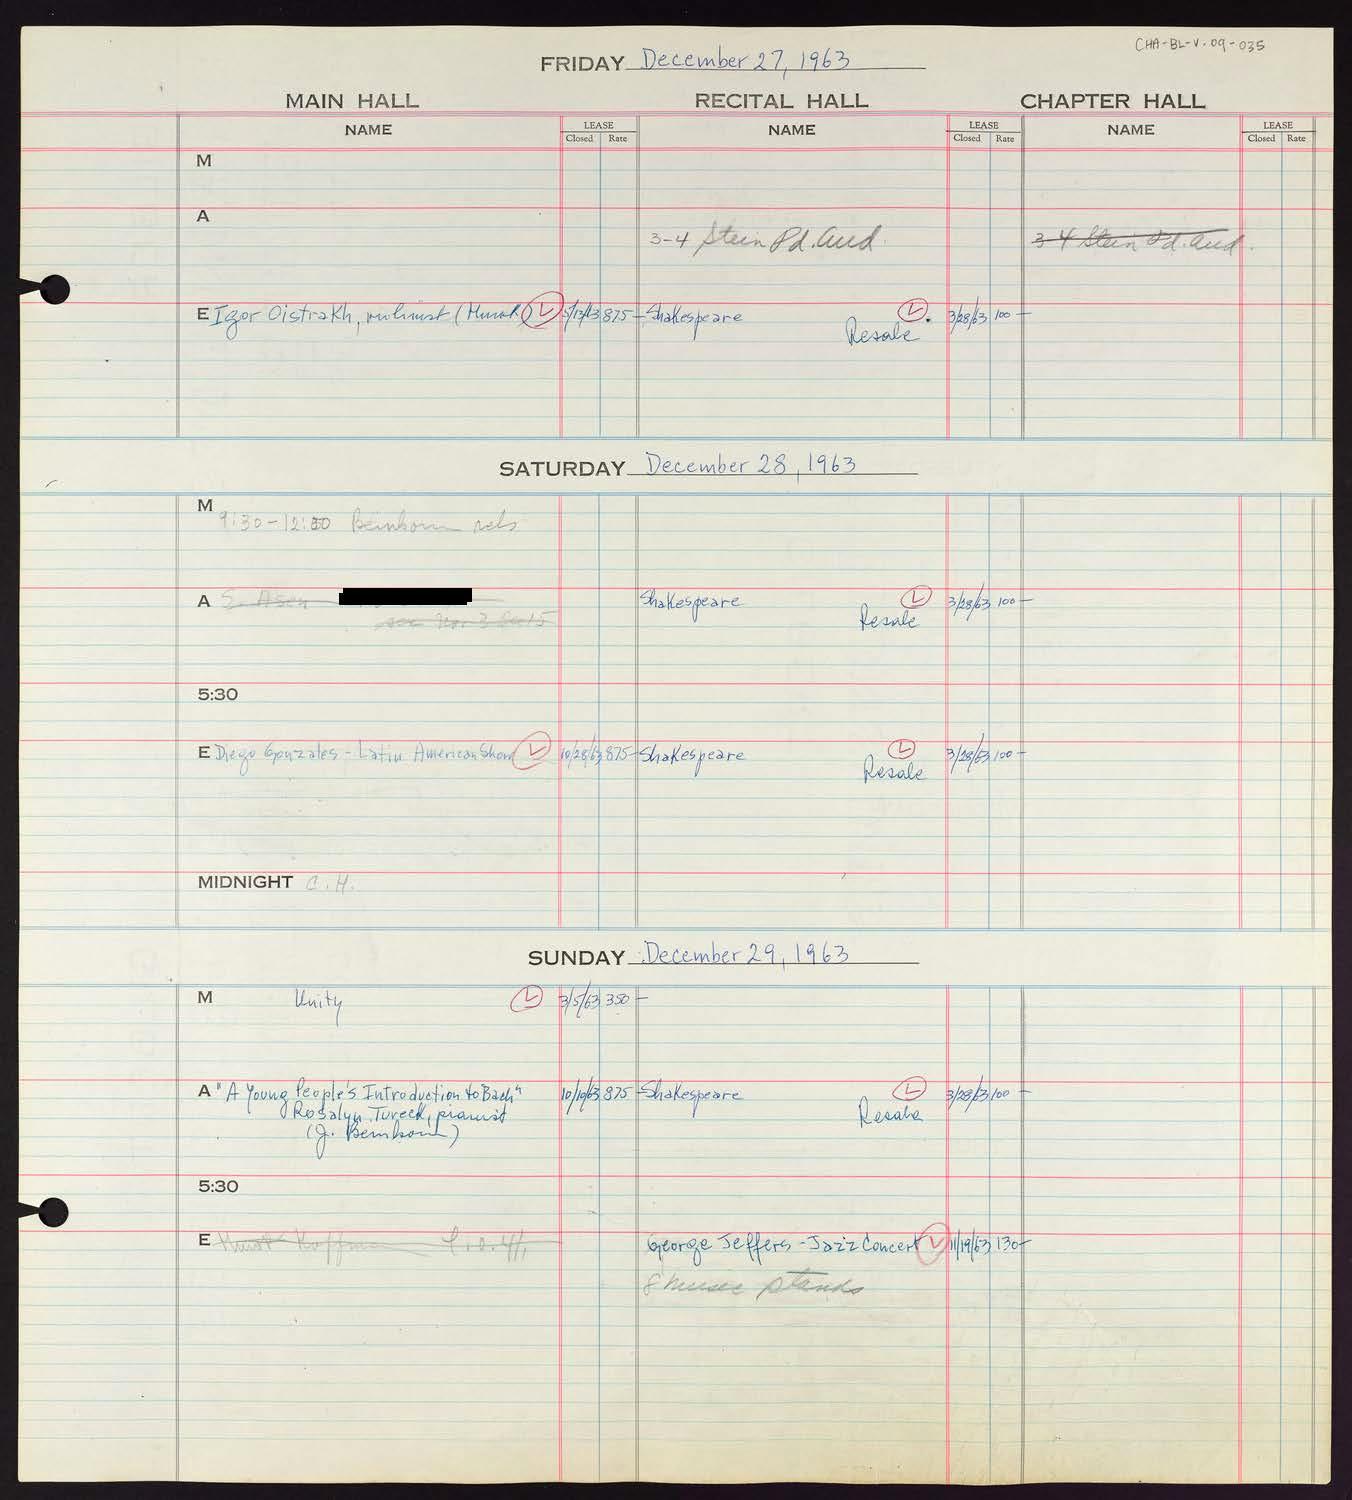 CHA-BL-V.09-035
FRIDAY December 27, 1963
MAIN HALL RECITAL HALL CHAPTER HALL
NAME LEASE NAME LEASE NAME LEASE
Closed Rate Closed Rate Closed Rate
M
A
3-4 Stein Pd. Aud. 3-4 Stein Pd. Aud.
E Igor Oistrakh, violinist (Hurok) L 5/13/63 875- Shakespeare L 3/28/63 100-
Resale
SATURDAY December 28, 1963
M
9:30-12:00 Beinhorn
A S. Asen Shakespeare L 3/28/63 100-
see Nov 3 Resale
5:30
E Diego Gonzales - Latin American Show L 10/28/63 875- Shakespeare L 3/28/63 100-
Resale
MIDNIGHT C.H.
SUNDAY December 29, 1963
M Unity L 3/5/63 350-
A "A Young People's Introduction to Bach" 10/10/63 875- Shakespeare L 3/28/63 100-
Rosalyn Tureck, pianist Resale
(J. Beinhorn)
5:30
E Hurok Koffman George Jeffers - Jazz Concert L 11/19/63 130-
8 music stands